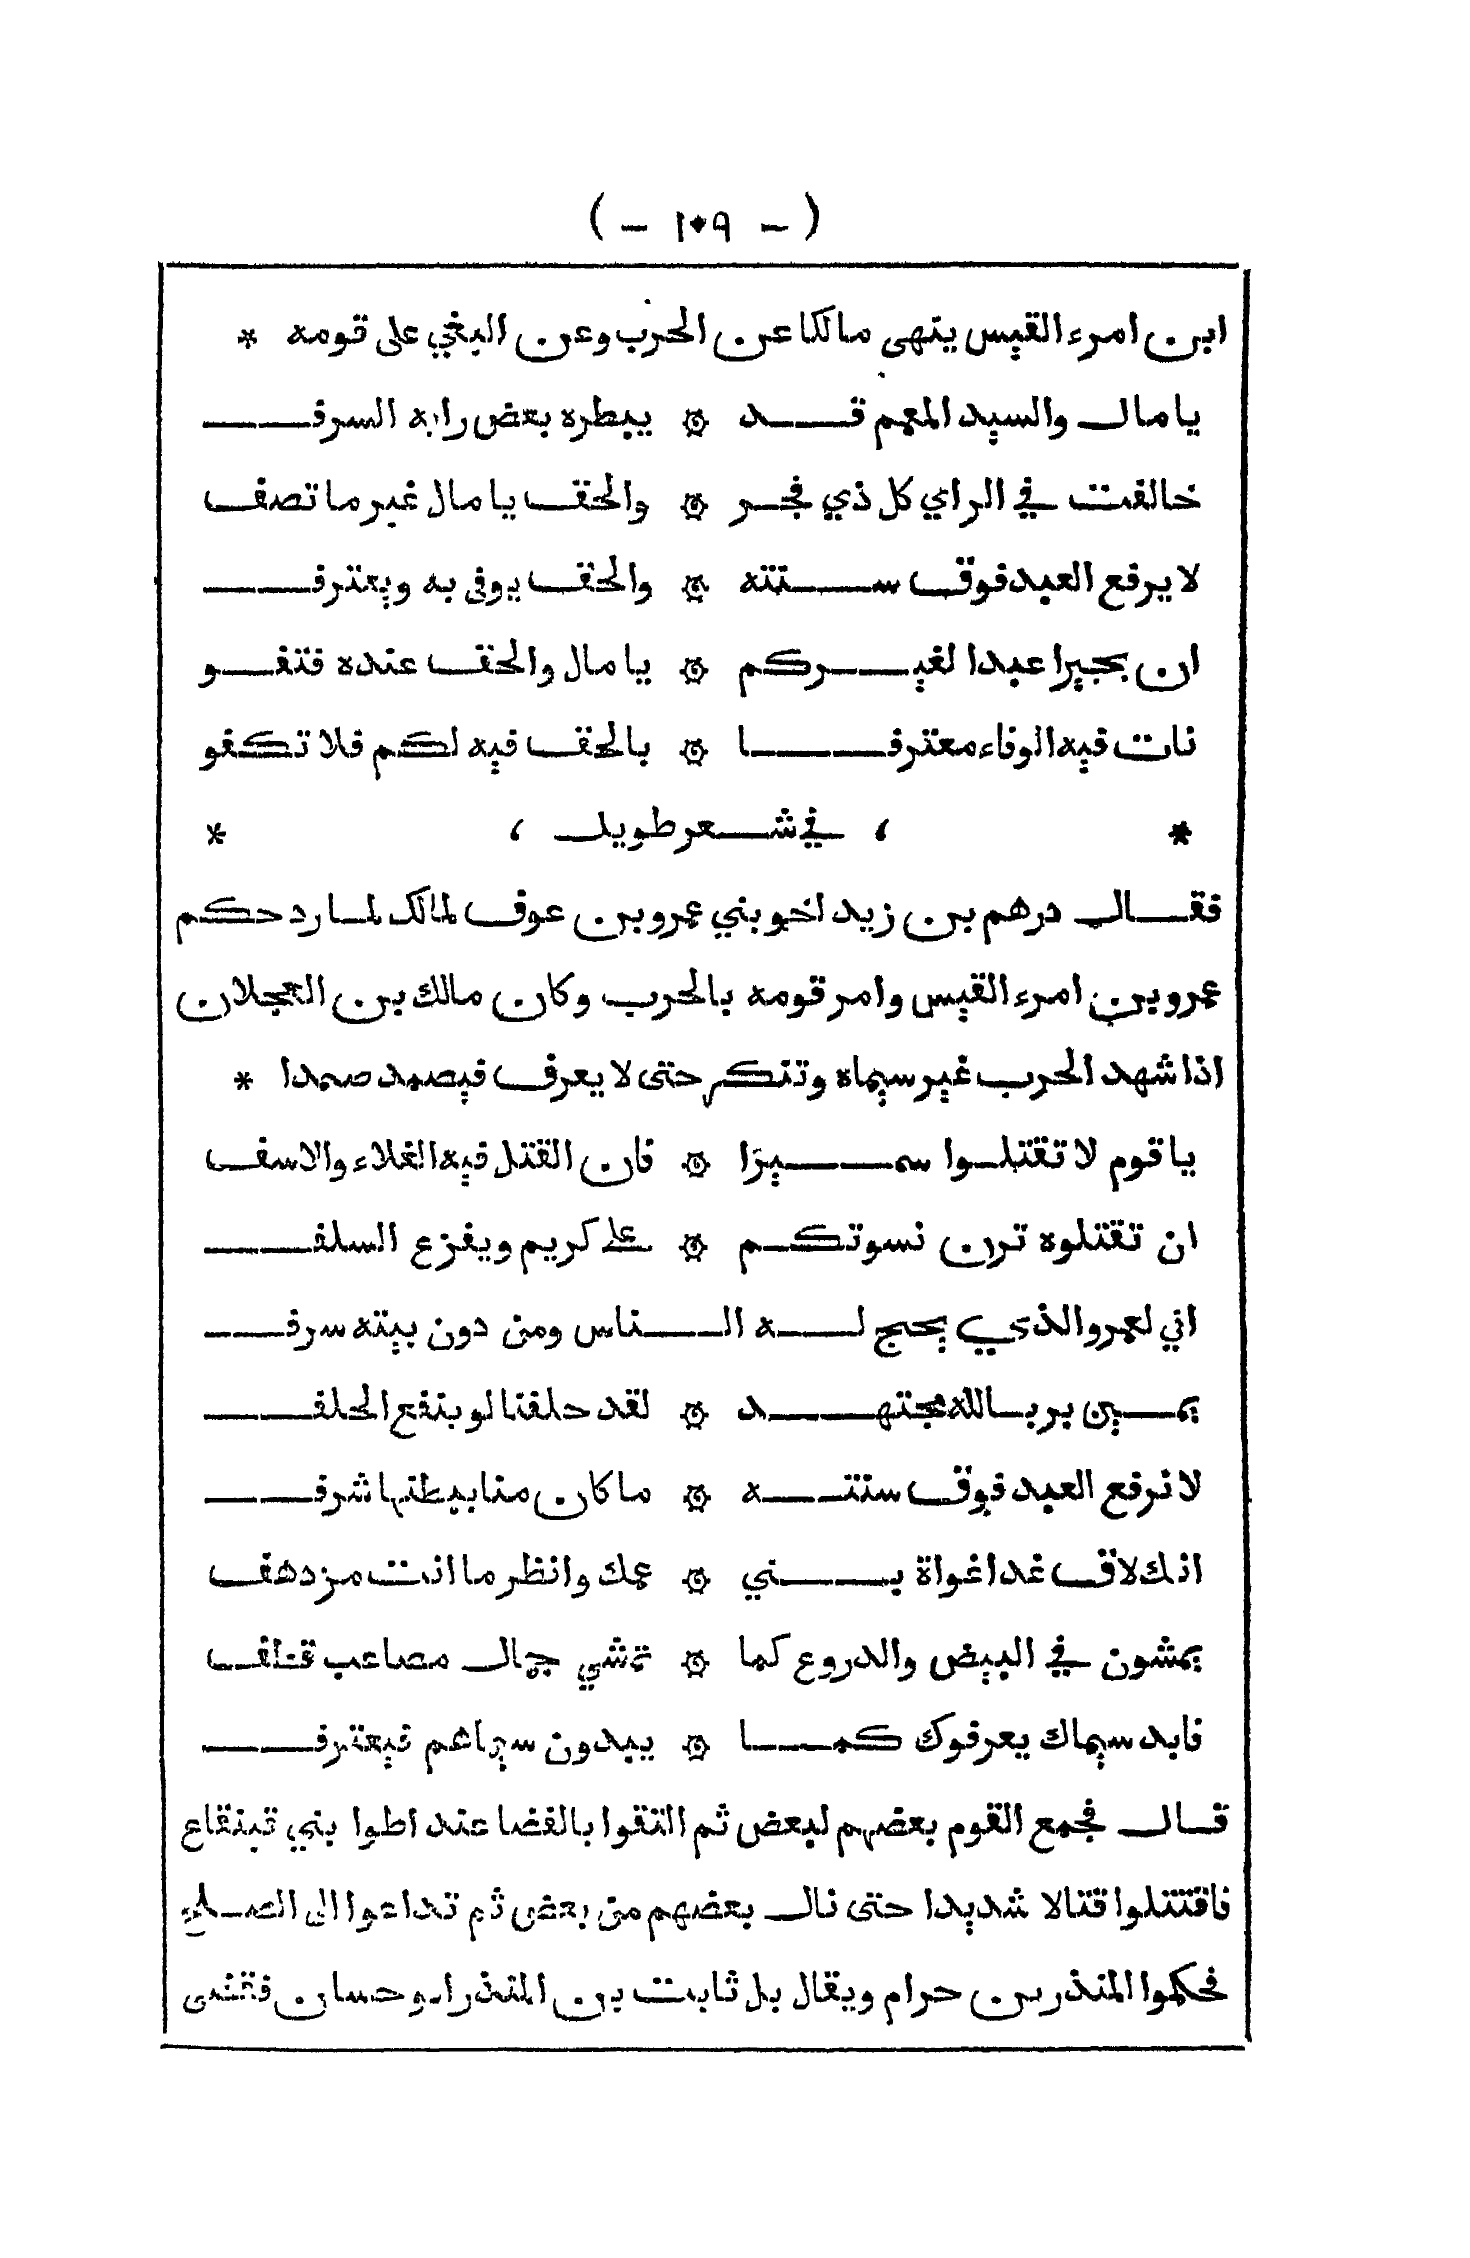 ( - ١٠٩ - )
ابن امرء القيس ينهى مالكا عن الحرب وعن البغي على قومه *
يا مال والسيد المعمم قد ۞ يبطره بعض رايه السرف
خالفت في الراي كل ذي فجر ۞ والحق يا مال غير ما تصف
لا يرفع العبد فوق سنته ۞ والحق يوفى به ويعترف
ان بجيرا عبدا لغيركم ۞ يا مال والحق عنده فتفو
نات فيه الوفاء معترفا ۞ بالحق فيه لكم فلا تكفو
* ، في شعر طويل ، *
فقال درهم بن زيد اخو بني عمرو بن عوف لمالك لما رد حكم
عمرو بن امرء القيس وامر قومه بالحرب وكان مالك بن العجلان
اذا شهد الحرب غير سيماه وتنكر حتى لا يعرف فيصمد صمدا *
يا قوم لا تقتلوا سميرَا ۞ فان القتل فيه الغلاء والاسف
ان تقتلوه ترن نسوتكم ۞ على كريم ويفزع السلف
اني لعمرو الذي يحج له الناس ومن دون بيته سرف
يمين بر بالله مجتهد ۞ لقد حلفنا لو ينفع الحلف
لا نرفع العبد فوق سنته ۞ ما كان منا ببطنها شرف
انك لاق غدا غواة بني ۞ عمك وانظر ما انت مزدهف
يمشون في البيض والدروع كما ۞ تمشي جمال مصاعب قتلف
فابد سيماك يعرفوك كما ۞ يبدون سيماهم فيعترف
قال فجمع القوم بعضهم لبعض ثم التقوا بالفضا عند اطوا بني قينقاع
فاقتتلوا قتالا شديدا حتى نال بعضهم من بعض ثم تداعوا الى الصلح
فحكموا المنذر بن حرام ويقال بل ثابت بن المنذر ابو حسان فقضى